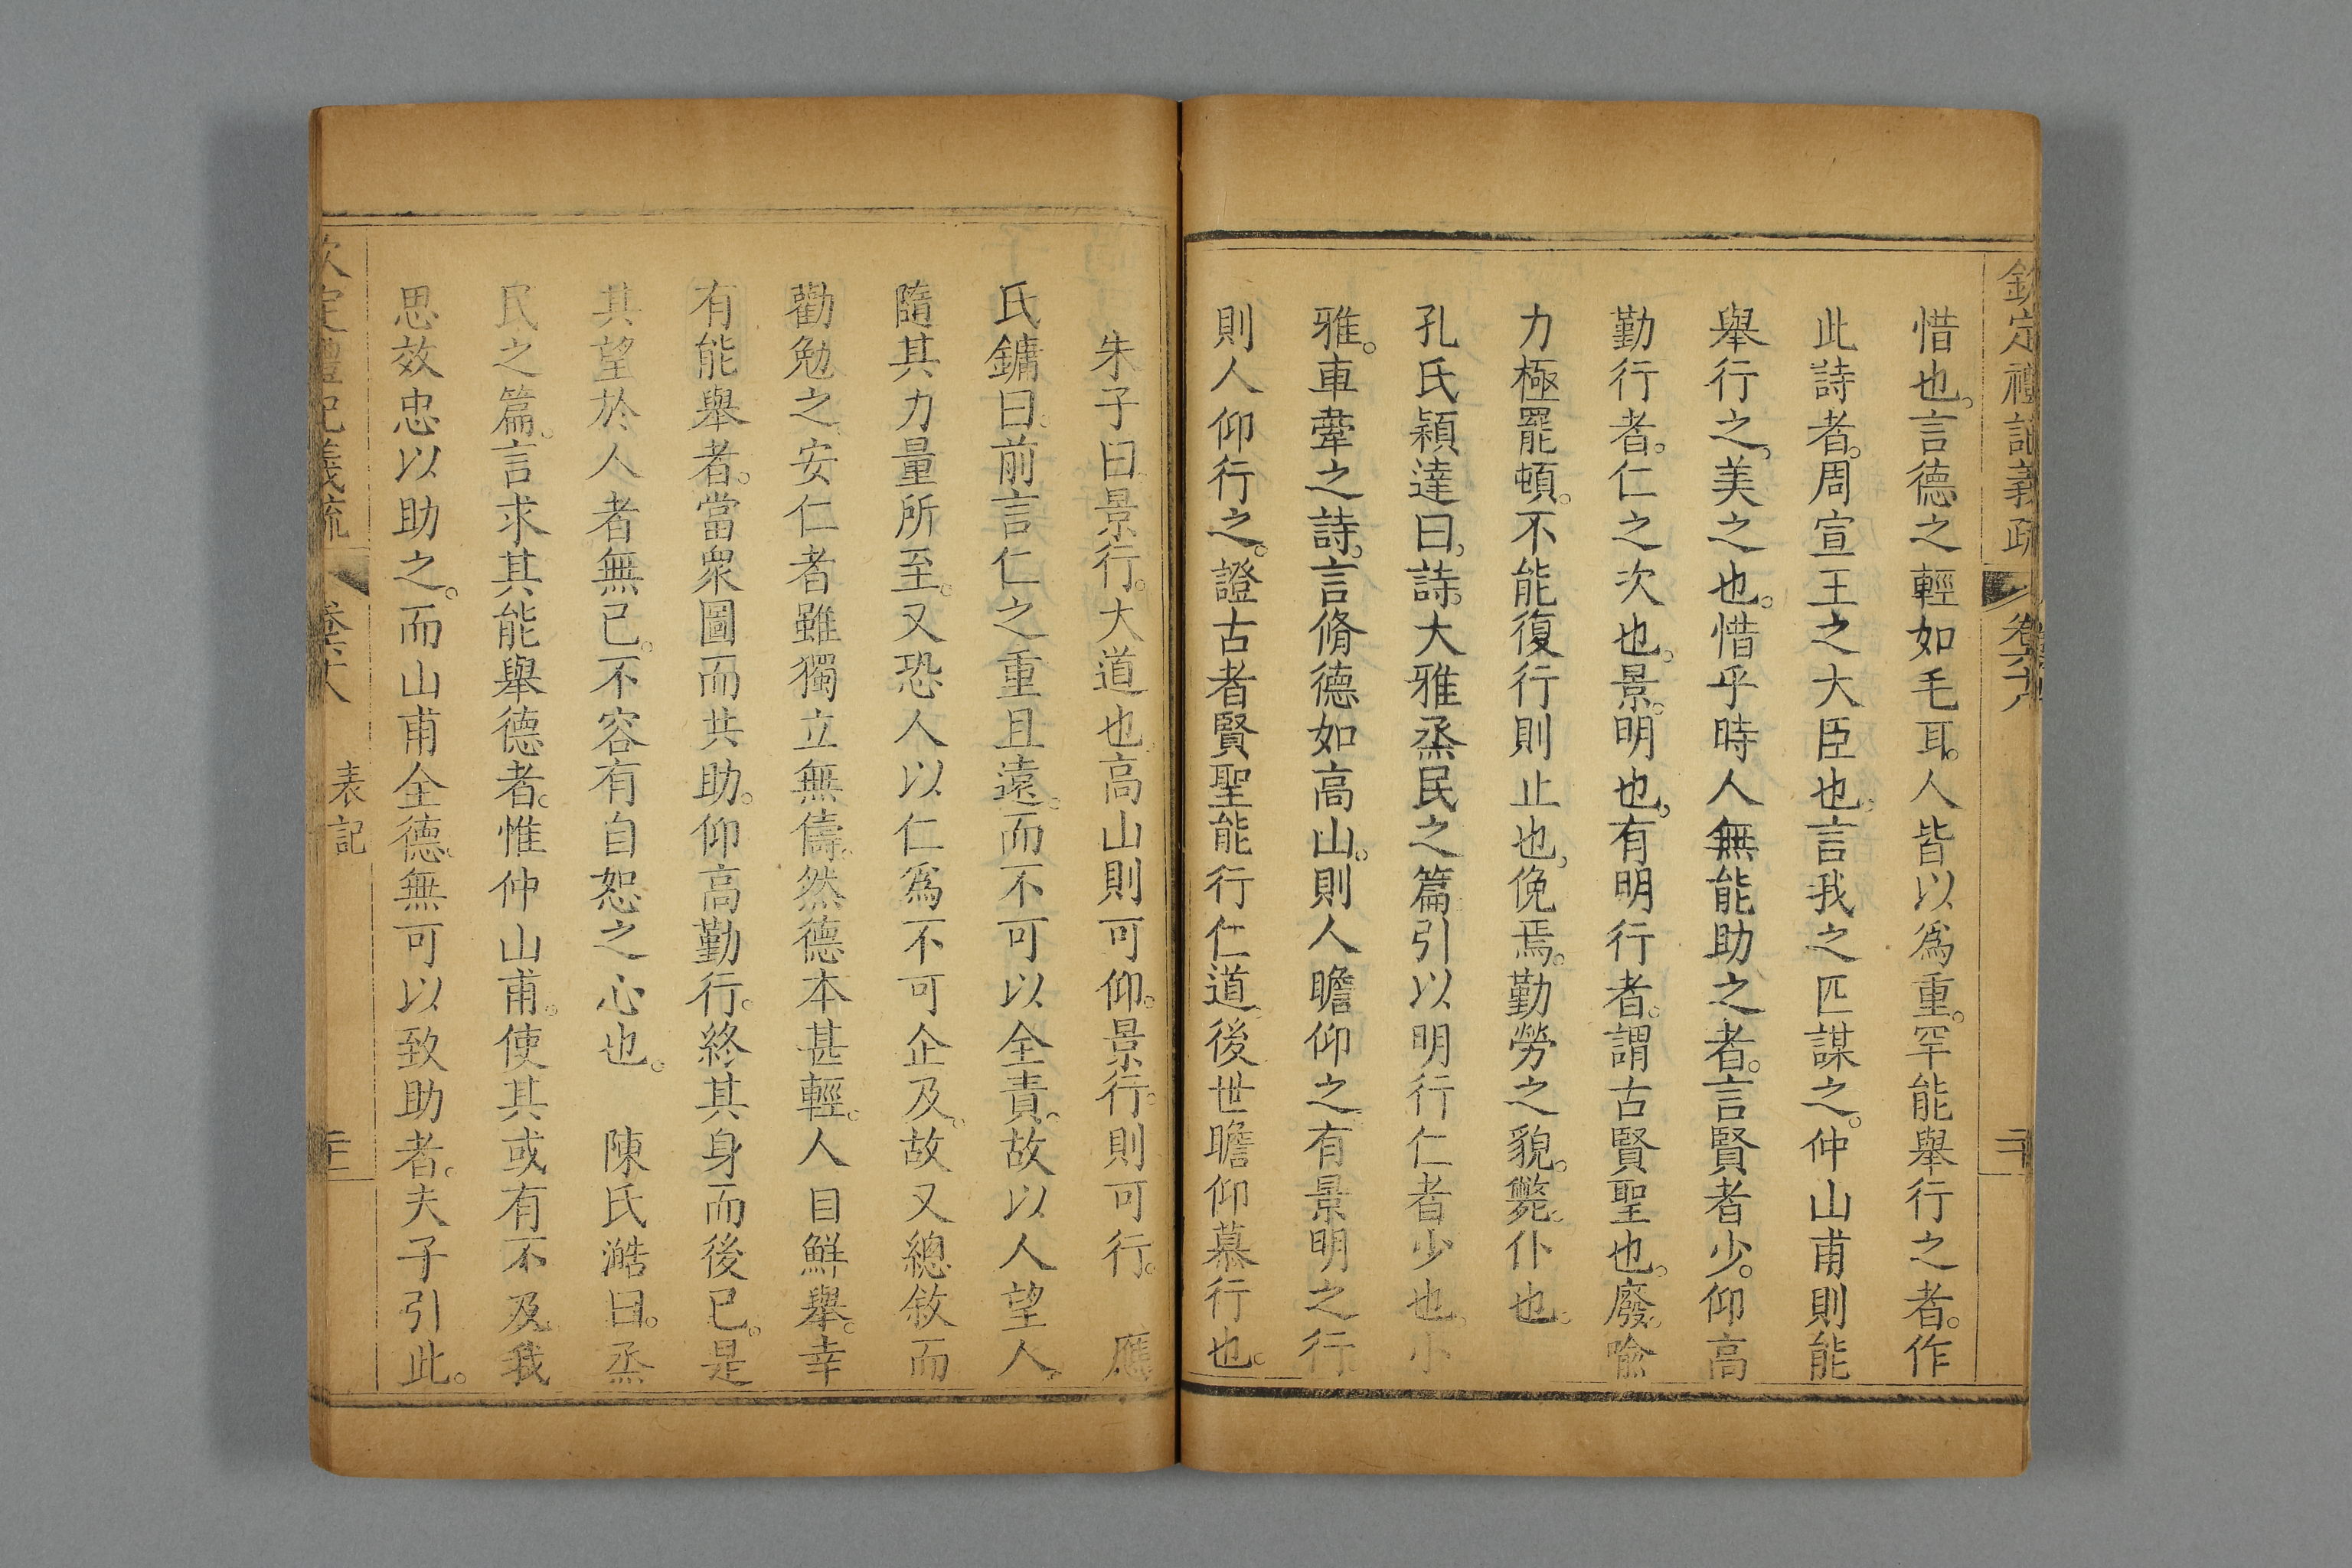 欽定禮記義疏 卷六十八 二十
惜也。言德之輕如毛耳。人皆以爲重。罕能舉行之者。作
此詩者。周宣王之大臣也。言我之匹謀之。仲山甫則能
舉行之。美之也。惜乎時人無能助之者。言賢者少。仰高
勤行者。仁之次也。景。明也。有明行者。謂古賢聖也。廢。喩
力極罷頓。不能復行則止也。俛焉。勤勞之貌。斃。仆也。
孔氏穎達曰。詩。大雅烝民之篇引以明行仁者少也。小
雅。車舝之詩。言脩德如高山。則人瞻仰之有景明之行。
則人仰行之。證古者賢聖能行仁道。後世瞻仰慕行也。
朱子曰。景行。大道也。高山則可仰。景行。則可行。 應
氏鏞曰。前言仁之重且遠。而不可以全責。故以人望人。
隨其力量所至。又恐人以仁爲不可企及。故又總敘而
勸勉之。安仁者雖獨立無儔。然德本甚輕。人自鮮舉。幸
有能舉者。當衆圖而共助。仰高勤行。終其身而後已。是
其望於人者無已。不容有自恕之心也。 陳氏澔曰。烝
民之篇。言求其能舉德者。惟仲山甫。使其或有不及。我
思效忠以助之。而山甫全德。無可以致助者。夫子引此。
欽定禮記義疏 卷六十八 表記 二十一